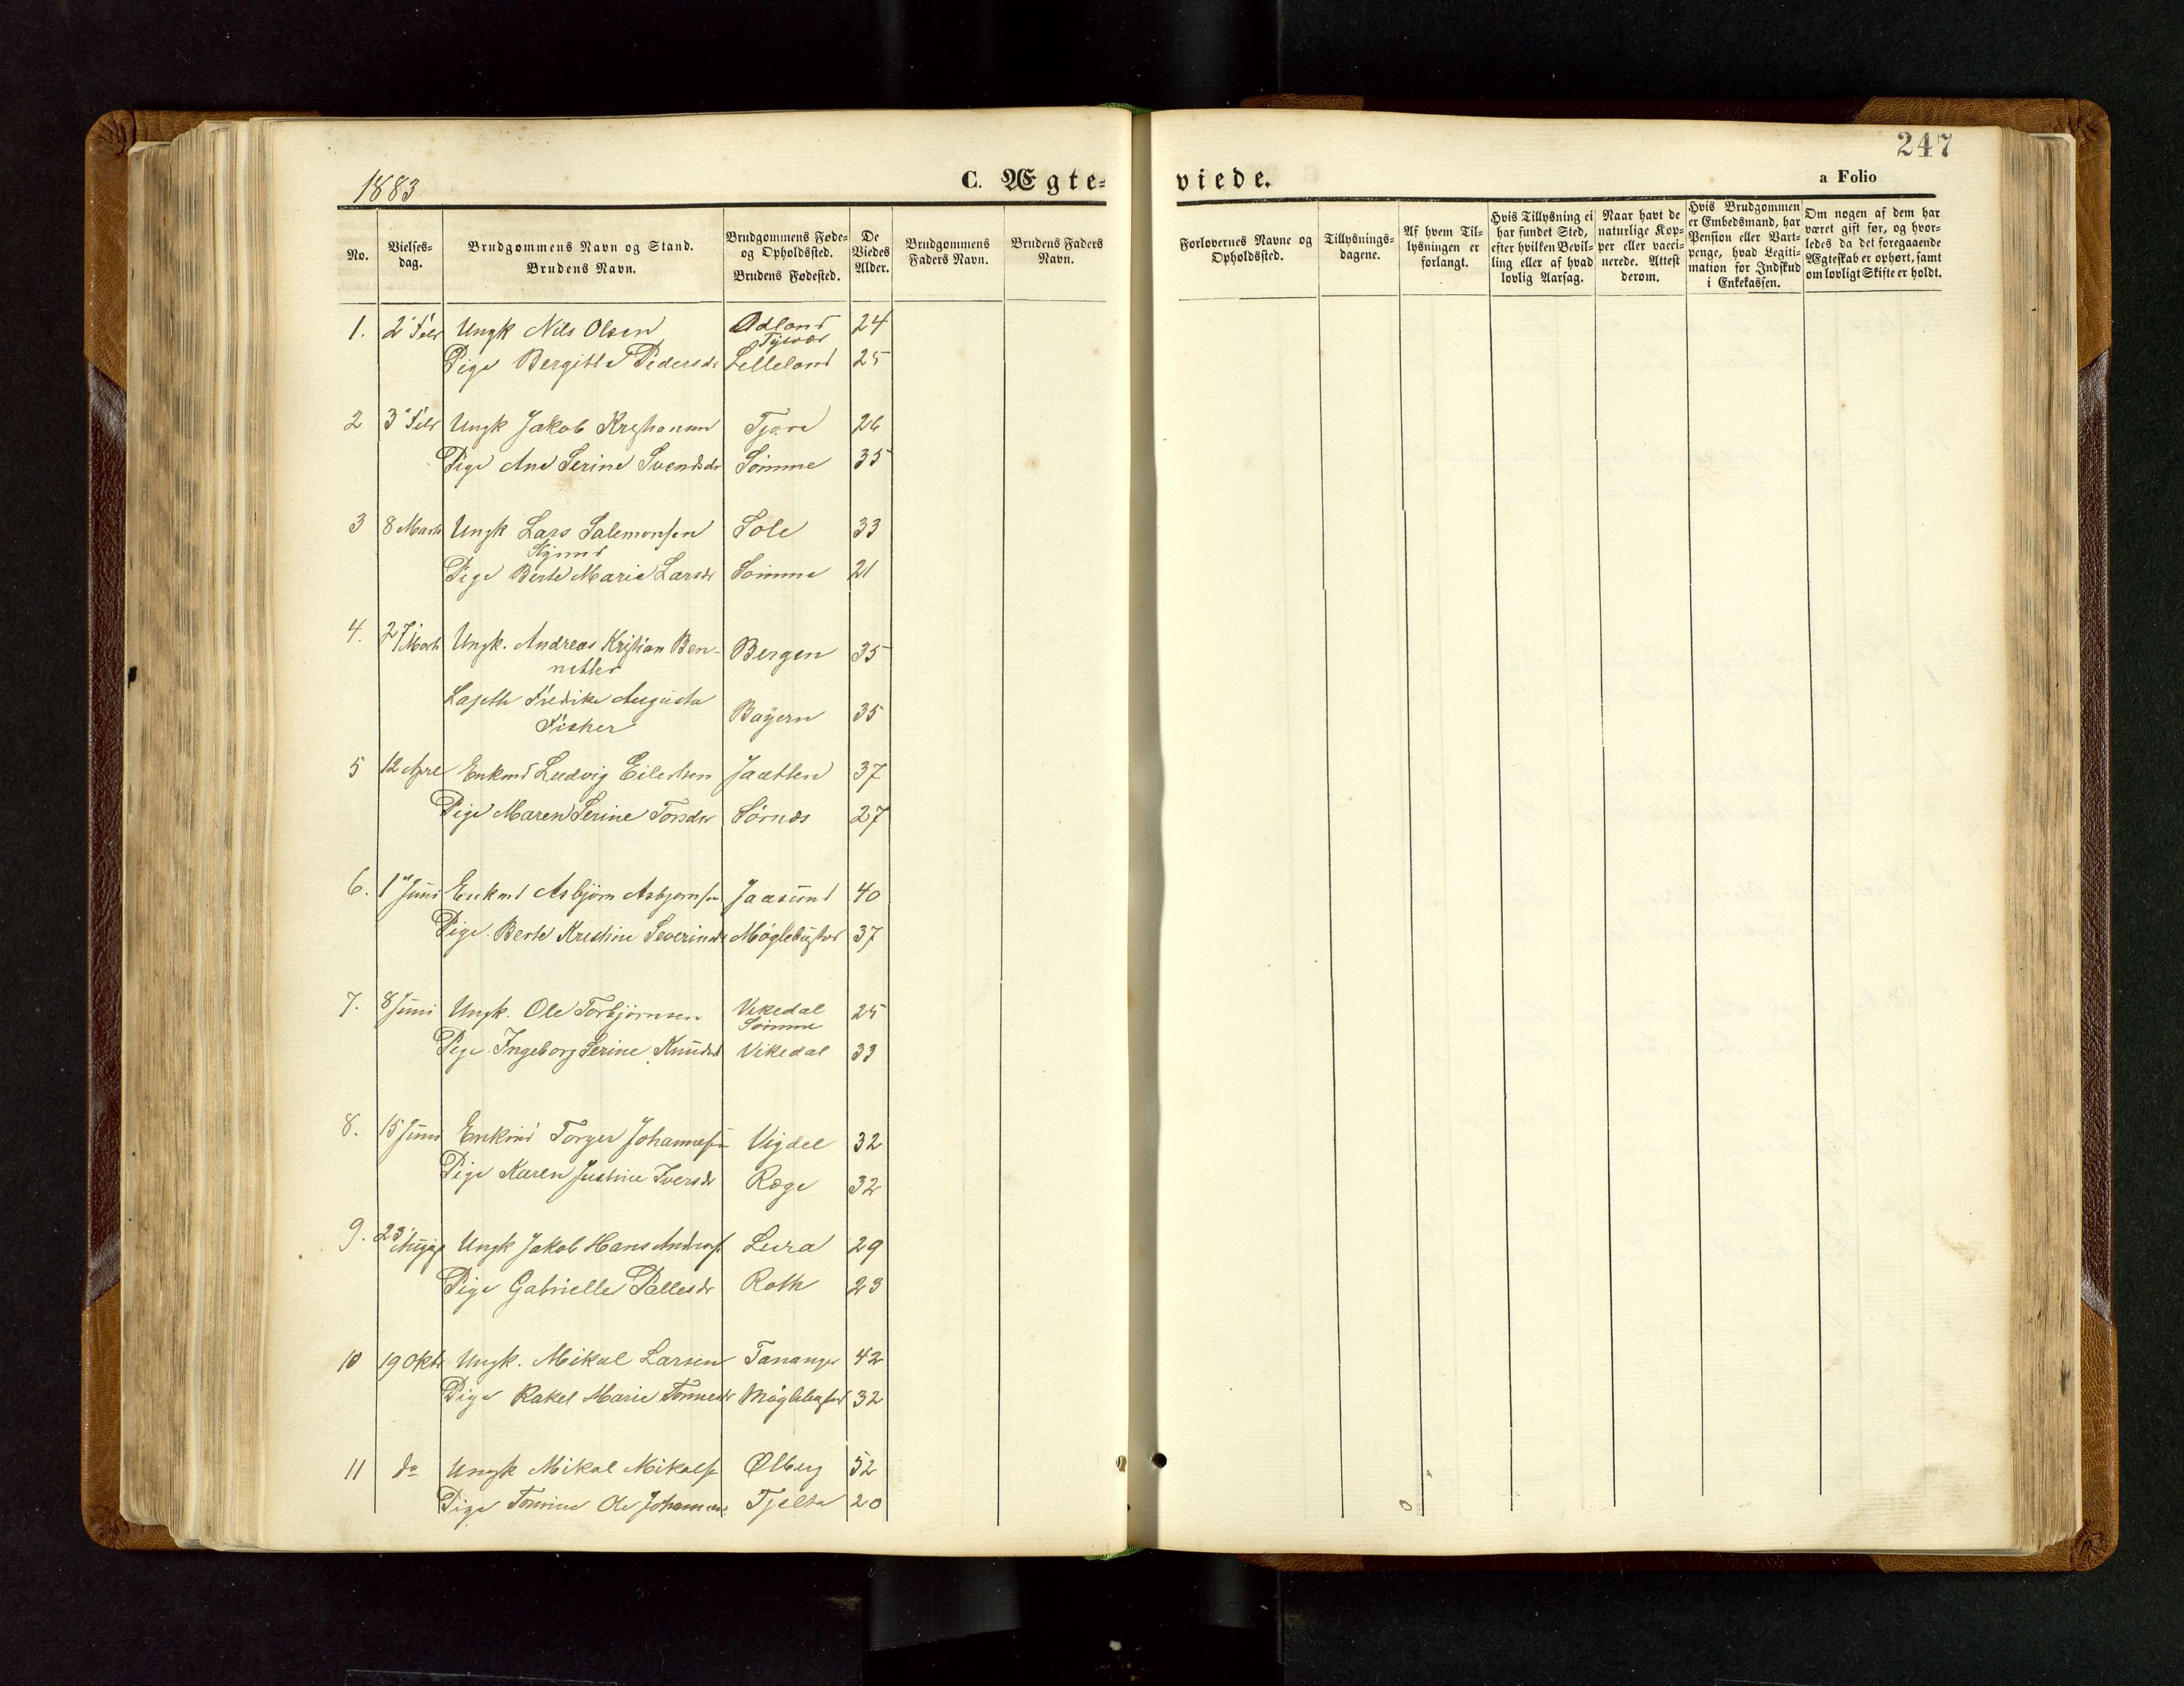 247
1883
C. Ægte=
viede.
a Folio
No.
Vielses-
dag.
Brudgommens Navn og Stand.
Brudens Navn.
Brudgommens Føde-
og Opholdssted.
Brudens Fødested.
De
Viedes
Alder.
Brudgommens
Faders Navn.
Brudens Faders
Navn.
Forlovernes Navne og
Opholdssted.
Tillysnings-
dagene.
Af hvem Til-
lysningen er
forlangt.
Hvis Tillysning ei
har fundet Sted,
efter hvilken Bevil-
ling eller af hvad
lovlig Aarsag.
Naar havt de
naturlige Kop-
per eller vacci-
nerede. Attest
derom.
Hvis Brudgommen
er Embedsmand, har
Pension eller Vart-
penge, hvad Legiti-
mation for Indskud
i Enkekassen.
Om nogen af dem har
været gift før, og hvor-
ledes da det foregaaende
Ægteskab er ophørt, samt
om lovligt Skifte er holdt.
1. 2 Febr Ungk Nils Olsen Adland 24
Tysvær
Pige Bergitta Pedersdr Lilleland 25
2 3 Febr Ungk Jakob Kristiansen Tjora 26
Pige Ane Serine Svendsdr Sømme 35
3 8 Marts Ungk Lars Salemonsen Sole 33
Pige Berte Marie Larsdr Sømme 21
4. 27 Marts Ungk. Andreas Kristian Ben- Bergen 35
netter
Fredrike Augusta Bayern 35
Fisher
5 12 April Enkmd Ludvig Eilertsen Jaatten 37
Pige Maren Serine Torsdr Sørnes 27
6. 1 Juni Enkmd Asbjørn Asbjørnsen Jaasund 40
Pige. Berte Kristine Severinsdr Møglebustad 37
7. 8 Juni Ungk. Ole Torbjørnsen Vikedal 25
Sømme
Pige Ingeborg Serine Knudsd Vikedal 33
8. 15 Juni Enkmd Torger Johannessen Vigdel 32
Pige Karen Justine Iversdr Røge 32
9. 23 August Ungk Jakob Hans Andreass Lura 29
Pige Gabrielle Pallesdr Roth 23
10 19 Oktr Ungk. Mikal Larsen Tananger 42
Pige Rakel Marie Tønnesdr Møglebustad 32
11 do Ungk Mikal Mikals Ølberg 52
Pige Tomine Ole Johannesd Tjelta 20